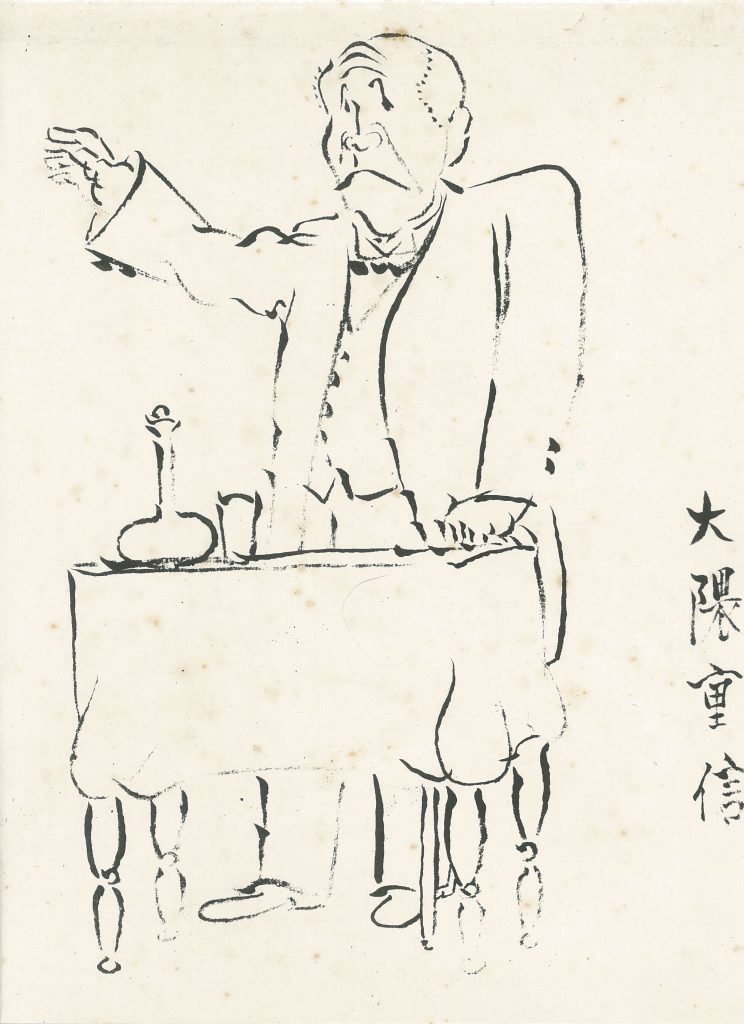 大隈重信